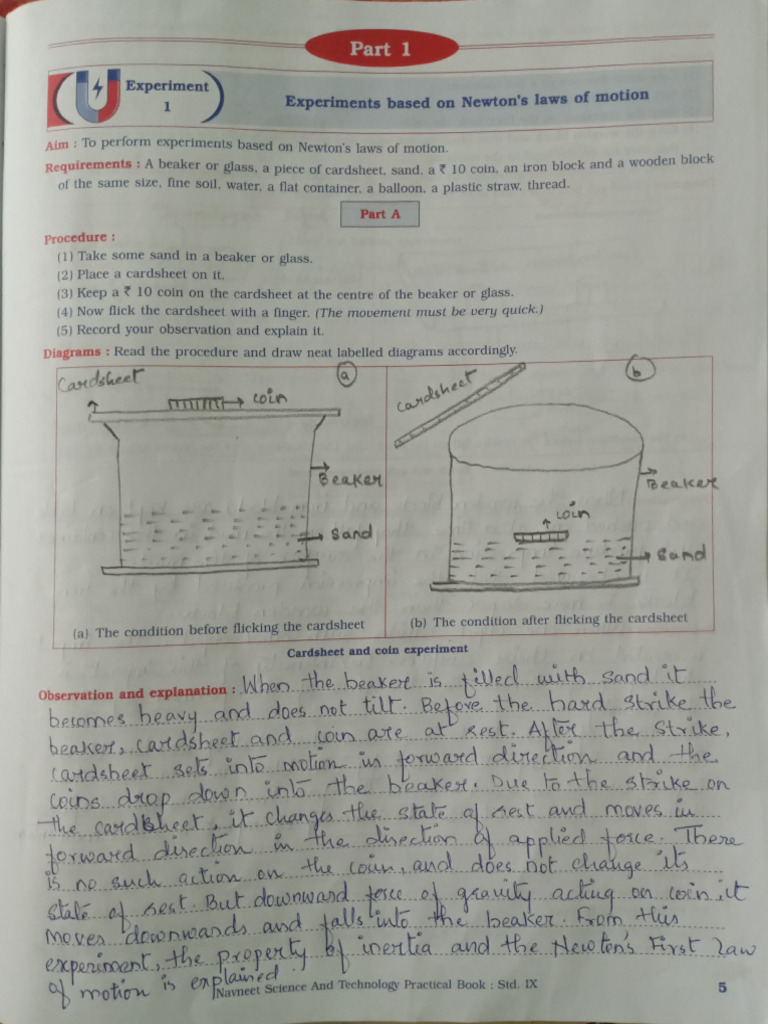 Part 1
Experiment
1
Experiments based on Newton's laws of motion
Aim : To perform experiments based on Newton's laws of motion.
Requirements : A beaker or glass, a piece of cardsheet, sand, a ₹ 10 coin, an iron block and a wooden block
of the same size, fine soil, water, a flat container, a balloon, a plastic straw, thread.
Part A
Procedure :
(1) Take some sand in a beaker or glass.
(2) Place a cardsheet on it.
(3) Keep a ₹ 10 coin on the cardsheet at the centre of the beaker or glass.
(4) Now flick the cardsheet with a finger. (The movement must be very quick.)
(5) Record your observation and explain it.
Diagrams : Read the procedure and draw neat labelled diagrams accordingly.
Cardsheet
a
coin
Beaker
Sand
(a) The condition before flicking the cardsheet
cardsheet
b
Beaker
coin
Sand
(b) The condition after flicking the cardsheet
Cardsheet and coin experiment
Observation and explanation : When the beaker is filled with sand it
becomes heavy and does not tilt. Before the hard strike the
beaker, cardsheet and coin are at rest. After the strike,
cardsheet sets into motion in forward direction and the
coins drop down into the beaker. Due to the strike on
the cardsheet, it changes the state of rest and moves in
forward direction in the direction of applied force. There
is no such action on the coin, and does not change its
state of rest. But downward force of gravity acting on coin, it
moves downwards and falls into the beaker. From this
experiment, the property of inertia and the Newton's First Law
of motion is explained.
Navneet Science And Technology Practical Book : Std. IX
5